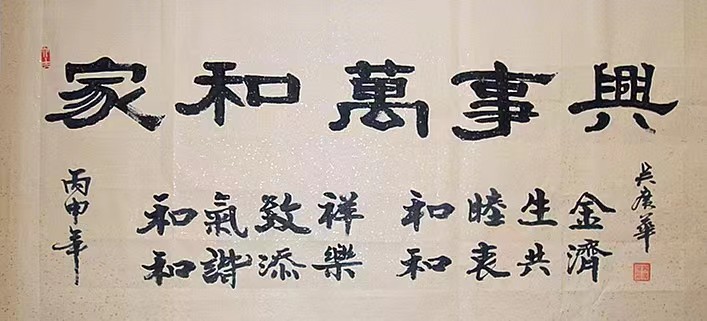 家和萬事興
丙申年
和氣致祥 和睦生金
和諧添樂 和衷共濟
吴廣華